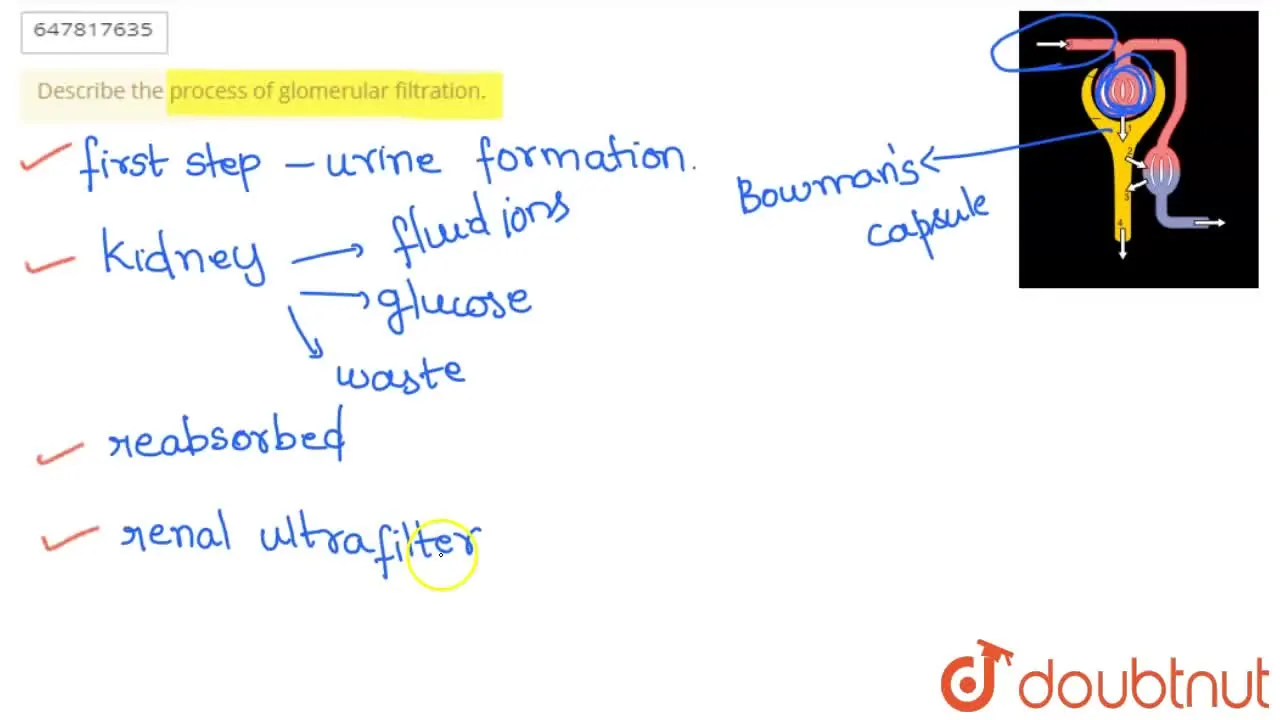 647817635
Describe the process of glomerular filtration.
first step - urine formation.
Kidney → fluid ions
→ glucose
waste
reabsorbed
renal ultrafilter
Bowman's
capsule
1
2
3
4
doubtnut